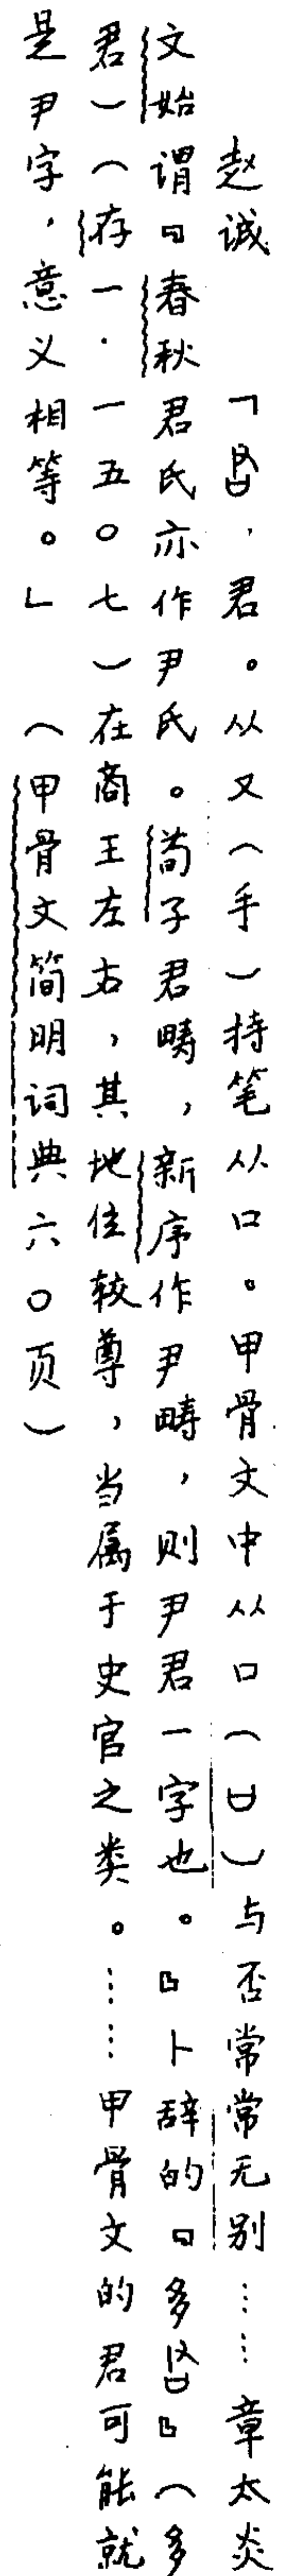 赵诚　「，君。从又（手）持笔从口。甲骨文中从口（ㅂ）与否常常无别……章太炎
文始谓『春秋君氏亦作尹氏。荀子君畴，新序作尹畴，则尹君一字也。』卜辞的『多』（多
君）（存一·一五〇七）在商王左右，其地位较尊，当属于史官之类。……甲骨文的君可能就
是尹字，意义相等。」（甲骨文简明词典六〇页）